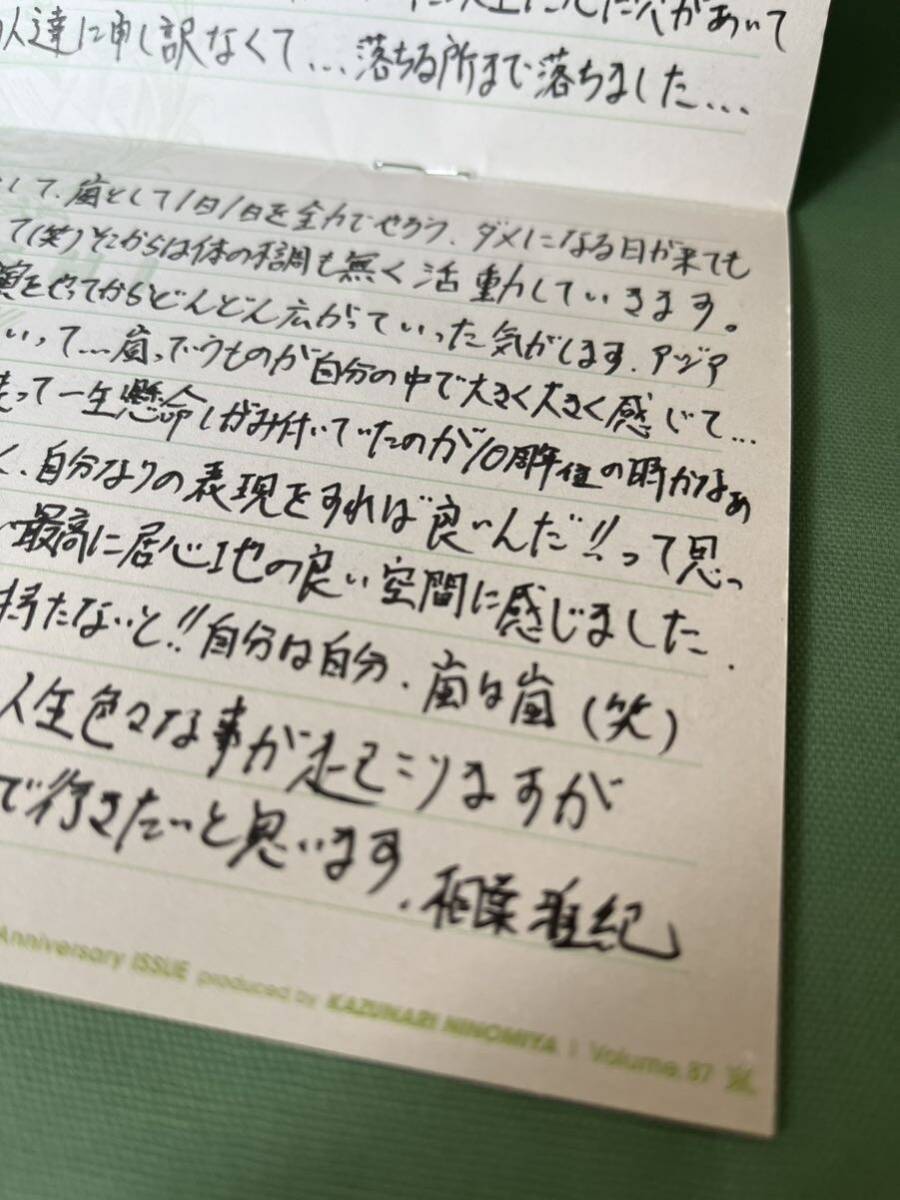 穴があいて
人達に申し訳なくて...落ちる所まで落ちました...
して、嵐として1日1日を全力でやろう、ダメになる日が来ても
て(笑)そこからは体の不調も無く活動していきます。
演をやってからどんどん広がっていった気がします、アジア
いって...嵐ってうものが自分の中で大きく大きく感じて...
走って一生懸命しがみ付いていたのが10周年位の時かなぁ
く、自分なりの表現をすれば良いんだ!!って思っ
最高に居心地の良い空間に感じました、
持たないと!!自分は自分、嵐は嵐(笑)
人生色々な事が起こりますが
で行きたいと思います、相葉雅紀
Anniversary ISSUE produced by KAZUNARI NINOMIYA | Volume.87